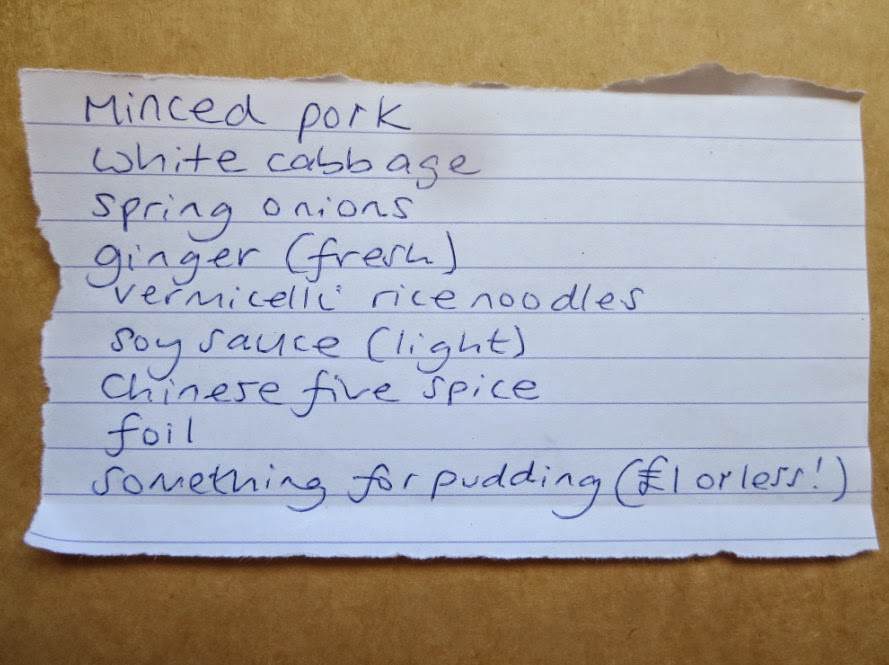 Minced pork
white cabbage
spring onions
ginger (fresh)
vermicelli rice noodles
soy sauce (light)
Chinese five spice
foil
something for pudding (£1 or less!)